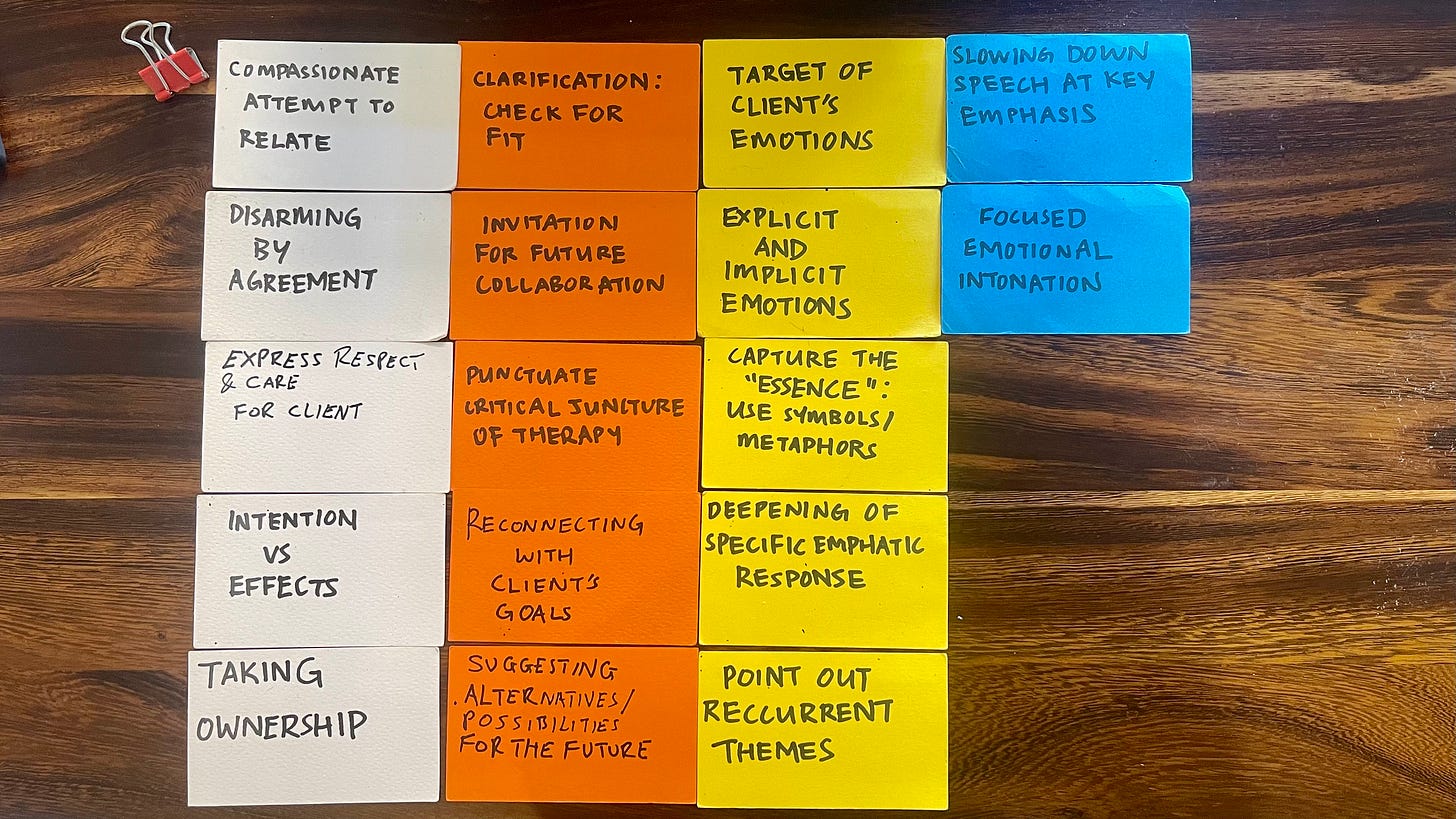 COMPASSIONATE
ATTEMPT TO
RELATE
DISARMING
BY
AGREEMENT
EXPRESS RESPECT
& CARE
FOR CLIENT
INTENTION
VS
EFFECTS
TAKING
OWNERSHIP
CLARIFICATION:
CHECK FOR
FIT
INVITATION
FOR FUTURE
COLLABORATION
PUNCTUATE
CRITICAL JUNCTURE
OF THERAPY
RECONNECTING
WITH
CLIENT'S
GOALS
SUGGESTING
ALTERNATIVES/
POSSIBILITIES
FOR THE FUTURE
TARGET OF
CLIENT'S
EMOTIONS
EXPLICIT
AND
IMPLICIT
EMOTIONS
CAPTURE THE
"ESSENCE":
USE SYMBOLS/
METAPHORS
DEEPENING OF
SPECIFIC EMPHATIC
RESPONSE
POINT OUT
RECCURRENT
THEMES
SLOWING DOWN
SPEECH AT KEY
EMPHASIS
FOCUSED
EMOTIONAL
INTONATION